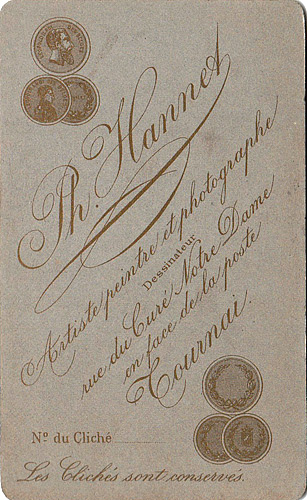 Th. Hannet
Artiste peintre et photographe
Dessinateur
rue du Curé Notre Dame
en face de la poste
Tournai.
Nº du Cliché
Les Clichés sont conservés.